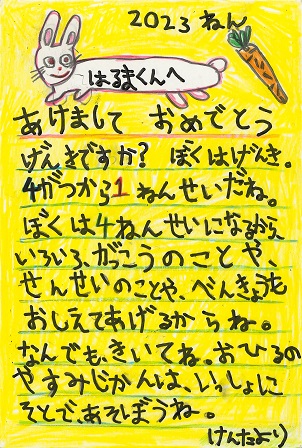 2023 ねん
はるまくんへ
あけまして おめでとう
げんきですか? ぼくはげんき。
4がつから1ねんせいだね。
ぼくは4ねんせいになるから、
いろいろ、がっこうのことや、
せんせいのことや、べんきょうも
おしえてあげるからね。
なんでも、きいてね。おひるの
やすみじかんは、いっしょに
そとで、あそぼうね。
けんたより